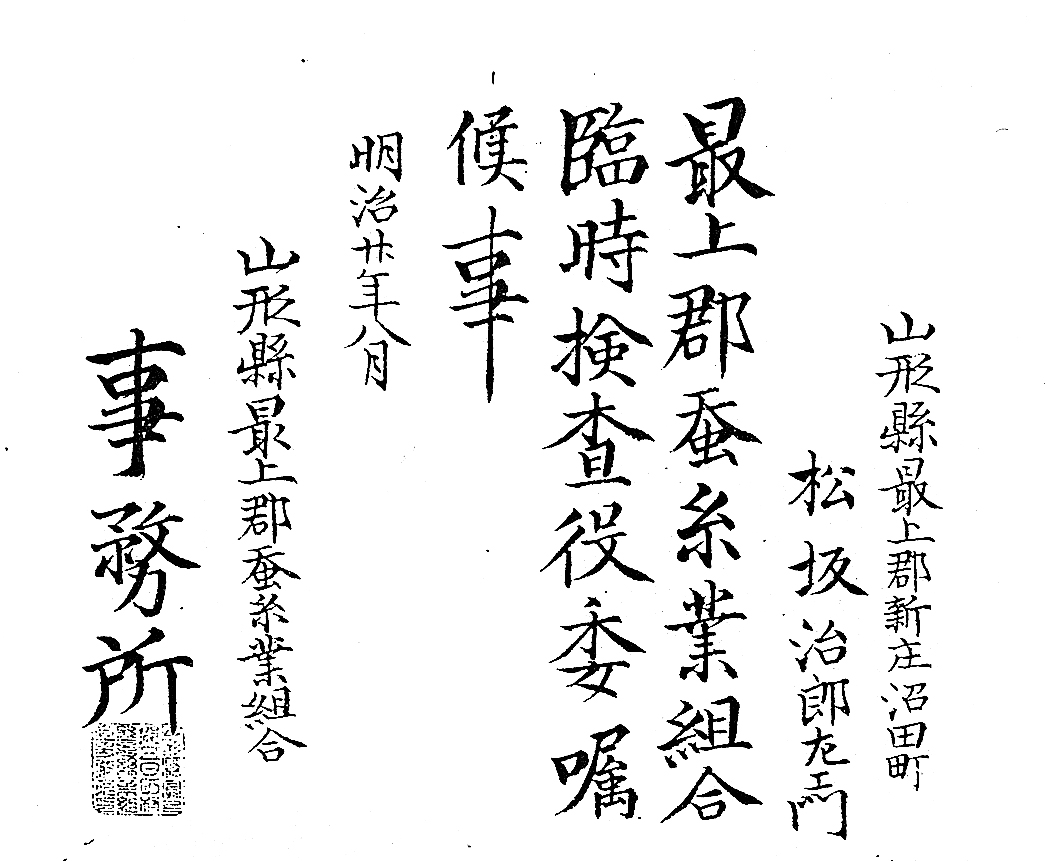 山形縣最上郡新庄沼田町
松坂治郎左エ門
最上郡蚕糸業組合
臨時検査役委嘱
候事
明治廿年八月
山形縣最上郡蚕糸業組合
事務所